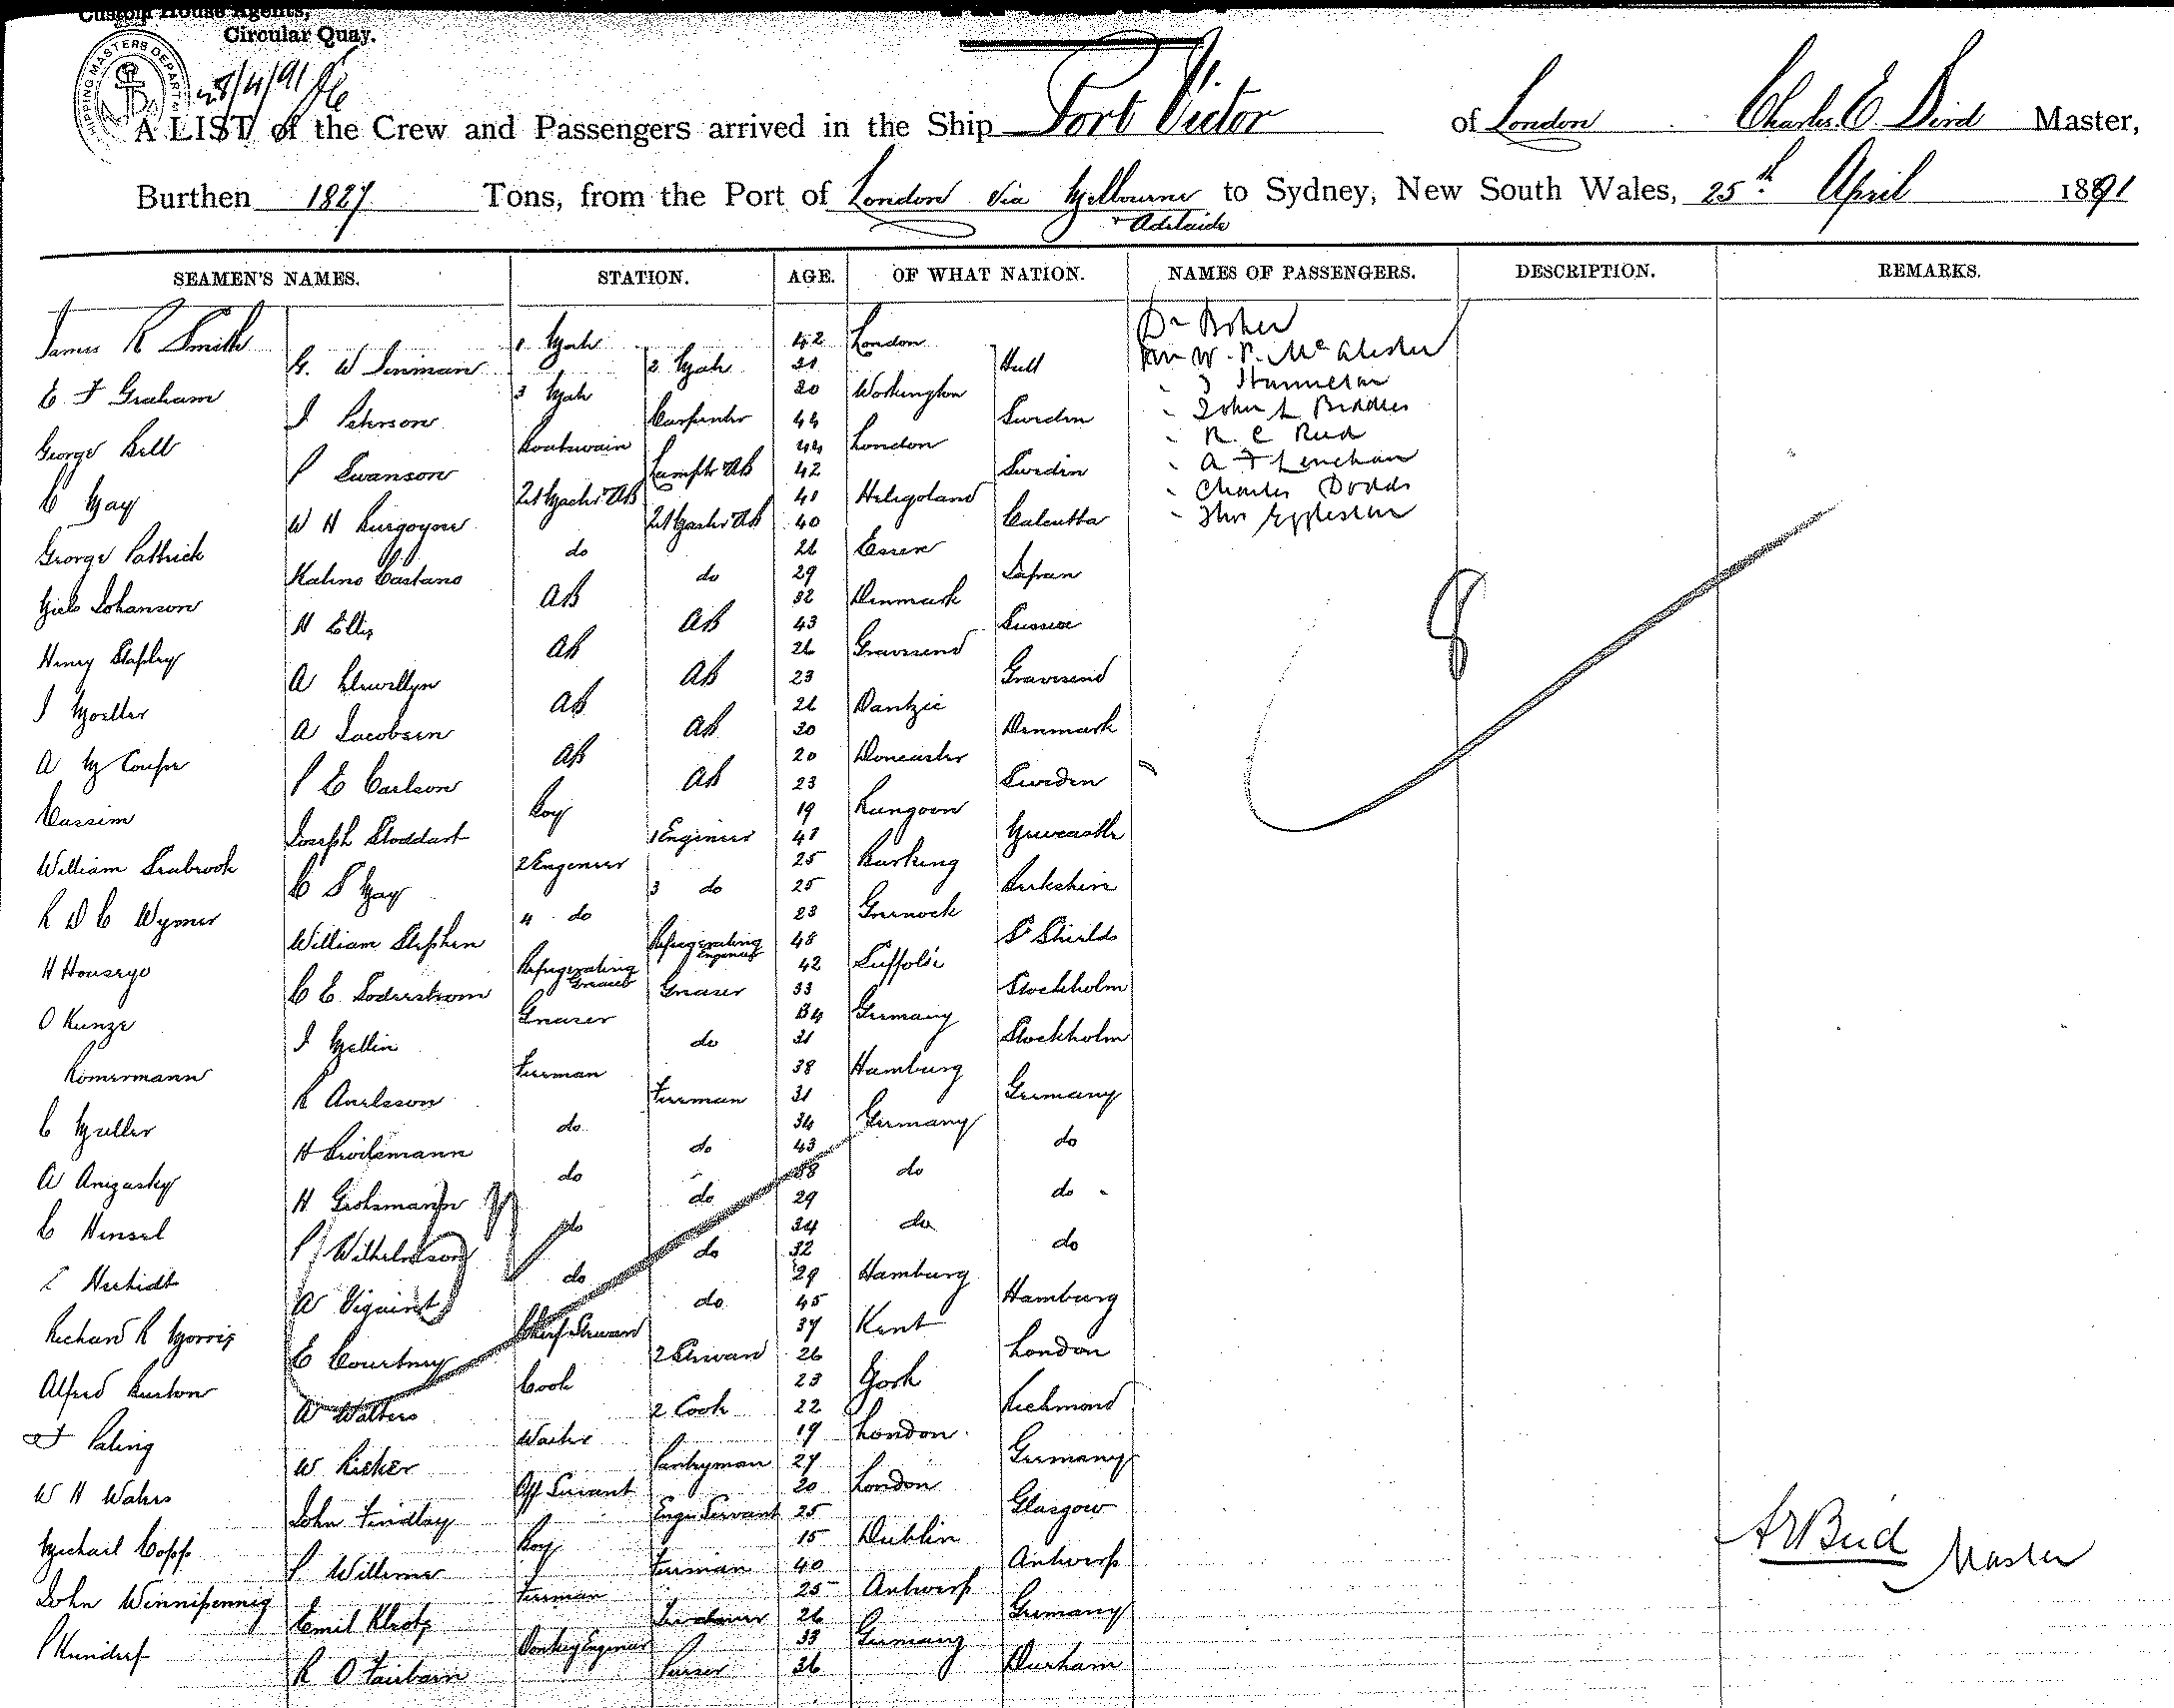 Custom House Agents,
Circular Quay.
SHIPPING MASTERS DEPART
28/4/91
A LIST of the Crew and Passengers arrived in the Ship Port Victor of London Charles E Bird Master,
Burthen 1827 Tons, from the Port of London via Melbourne to Sydney, New South Wales, 25th April 1891
& Adelaide
SEAMEN'S NAMES. STATION. AGE. OF WHAT NATION. NAMES OF PASSENGERS. DESCRIPTION. REMARKS.
James R Smith 1 Mate 42 London Dr
G. W Inman 2 Mate 31 Hull W. P. McAlister
E F Graham 3 Mate 20 Workington
J Peterson Carpenter 44 Sweden John L Biddles
George Bell Boatswain 44 London R. C Reed
P Swanson Lamptr AB 42 Sweden A F Lenehan
C May Qr Master AB 41 Heligoland Charles Dodds
W H Burgoyne Qr Master AB 40 Calcutta Jno Eggleston
George Pattrick do 26 Essex
Castano do 29 Japan
Niels Johanson AB 32 Denmark 8
H Ellis AB 43 Sussex
Henry Stapley AB 26 Gravesend
A Llewellyn AB 23 Gravesend
J Moeller AB 26 Dantzic
A Jacobsen AB 30 Denmark
A M Couper AB 20 Doncaster
P E Carlson AB 23 Sweden
Cassim Boy 19 Rangoon
Joseph Stoddart 1 Engineer 41 Newcastle
William Seabrook 2 Engineer 25 Barking
C S May 3 do 25 Berkshire
R D C Wymer 4 do 23 Greenock
William Stephen Refrigerating Engineer 48 So Shields
H Housego Refrigerating Greaser 42 Suffolk
C E Soderstrom Greaser 33 Stockholm
O Kunze Greaser 34 Germany
J Mellin do 31 Stockholm
Romermann Fireman 38 Hamburg
R Fireman 31 Germany
C Muller do 34 Germany
H do 43 do
A do 38 do
H Grohsmann do 29 do
C Hensel do 34 do
P Wilhelmson do 32 do
do 29 Hamburg
A do 45 Hamburg
Richard R Morris Chief Steward 37 Kent
E Courtney 2 Steward 26 London
Alfred Burton Cook 23 York
A Walters 2 Cook 22 Richmond
F Paling Waiter 19 London
W Ricker Pantryman 27 Germany
W H Waters Off Servant 20 London
John Findlay Engrs Servant 25 Glasgow
Michael Copp Boy 15 Dublin
P Willeme Fireman 40 Antwerp Bird Master
John Winnipennig Fireman 25 Antwerp
Emil Klotz 26 Germany
P Kundorf Donkey Engineer 33 Germany
R O Fairbairn Purser 36 Durham